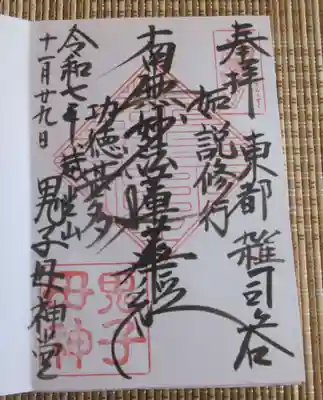 奉拝
東都 雑司谷
如説修行
南無妙法蓮華経
功徳甚多
令和七年
十一月廿九日
鬼子母神堂
鬼子
母神